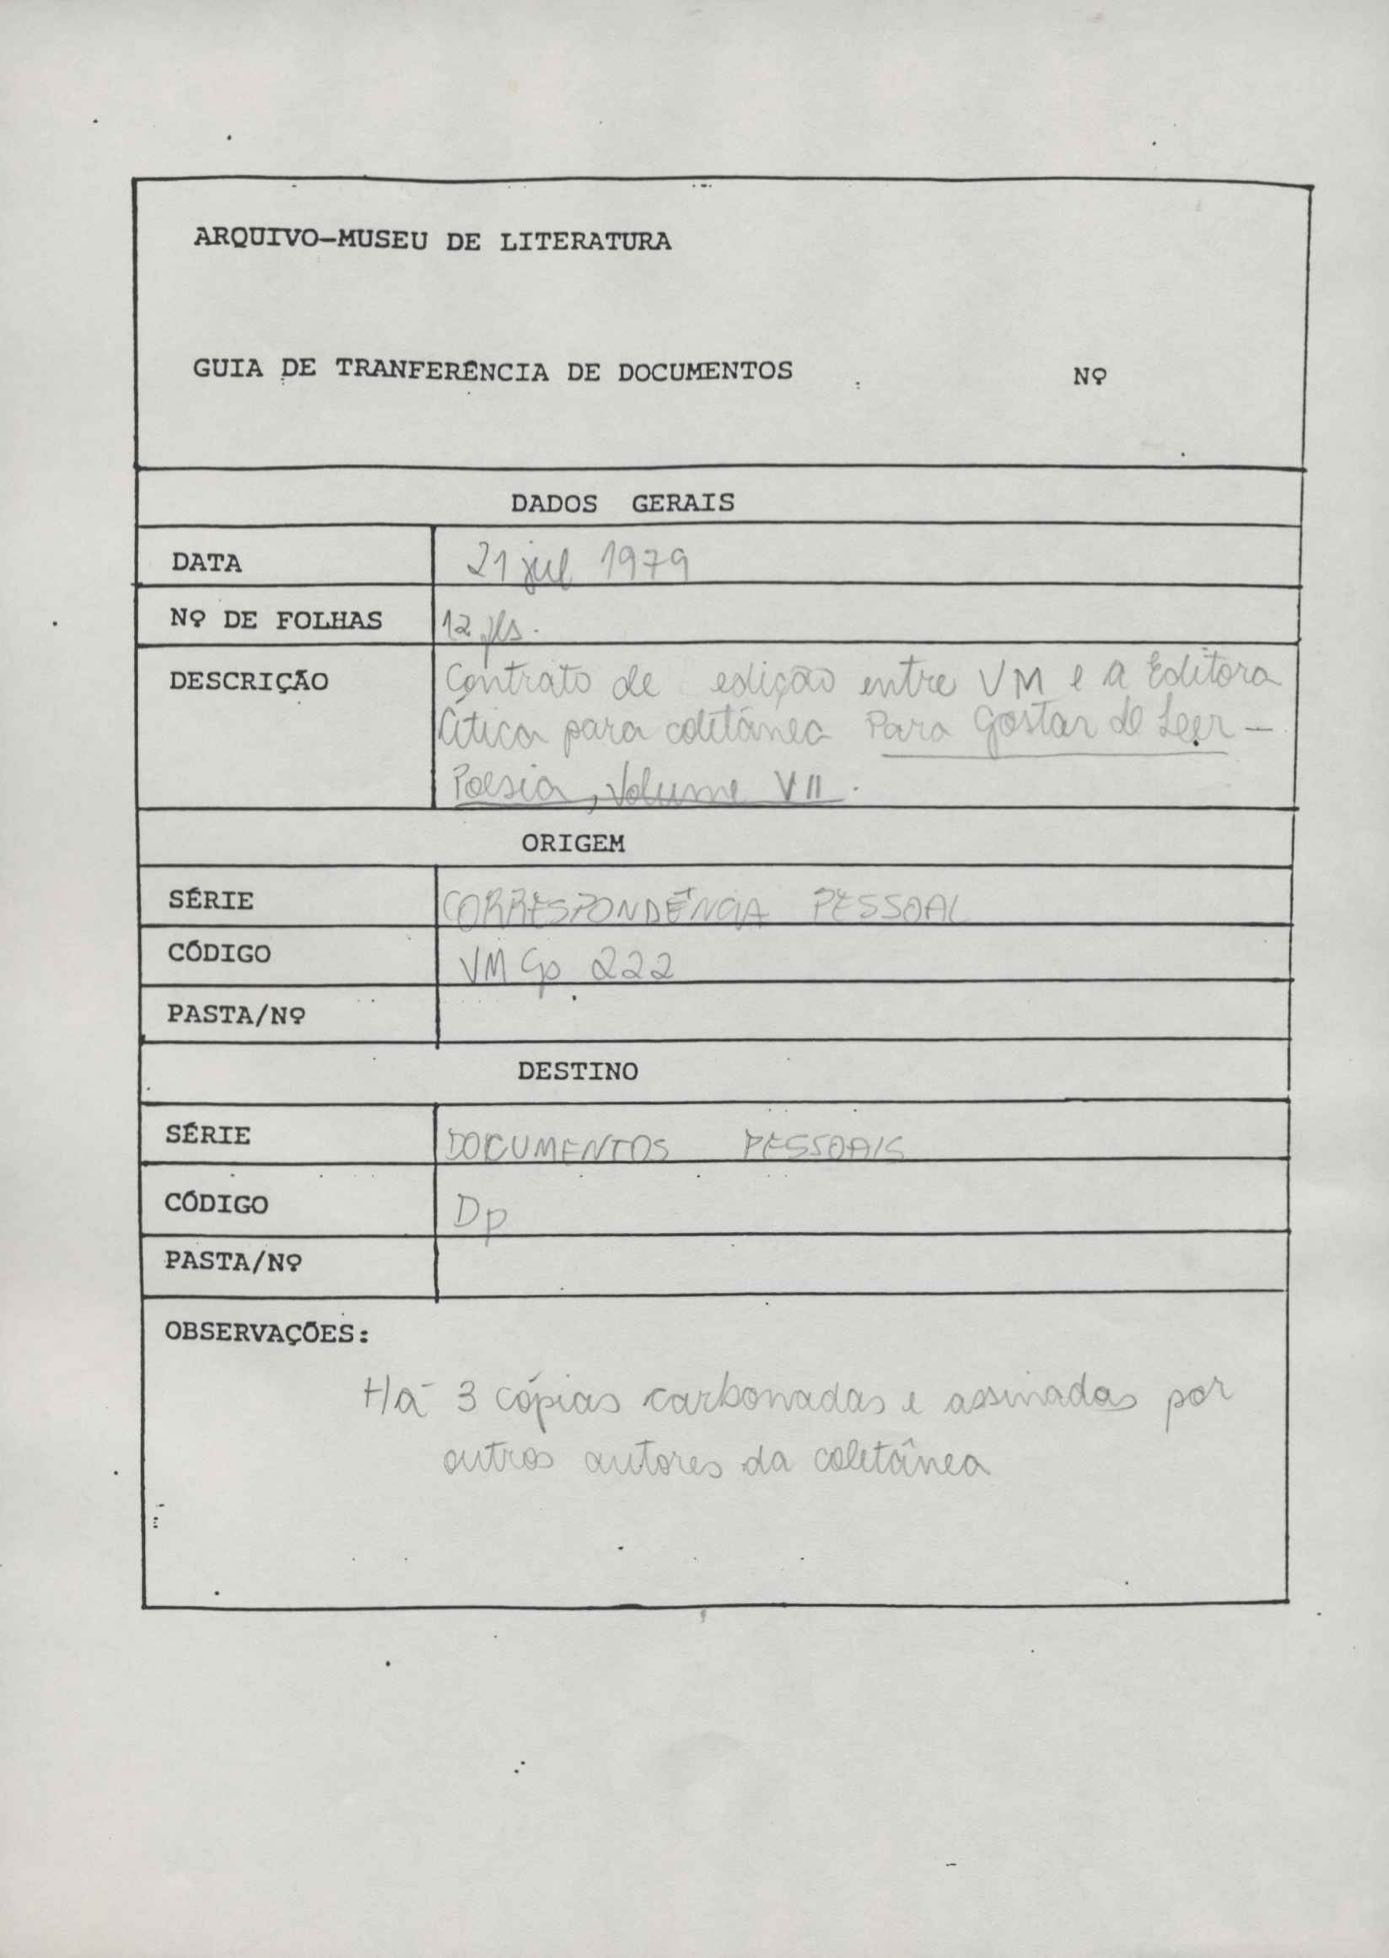 ARQUIVO-MUSEU DE LITERATURA
GUIA DE TRANFERÊNCIA DE DOCUMENTOS Nº
DADOS GERAIS
DATA 21 jul 1979
Nº DE FOLHAS 12 fls.
DESCRIÇÃO Contrato de edição entre VM e a Editora
Ática para coletânea Para Gostar de Ler -
Poesia, Volume VII.
ORIGEM
SÉRIE CORRESPONDÊNCIA PESSOAL
CÓDIGO VM Cp 222
PASTA/Nº
DESTINO
SÉRIE DOCUMENTOS PESSOAIS
CÓDIGO Dp
PASTA/Nº
OBSERVAÇÕES:
Há 3 cópias carbonadas e assinadas por
outros autores da coletânea